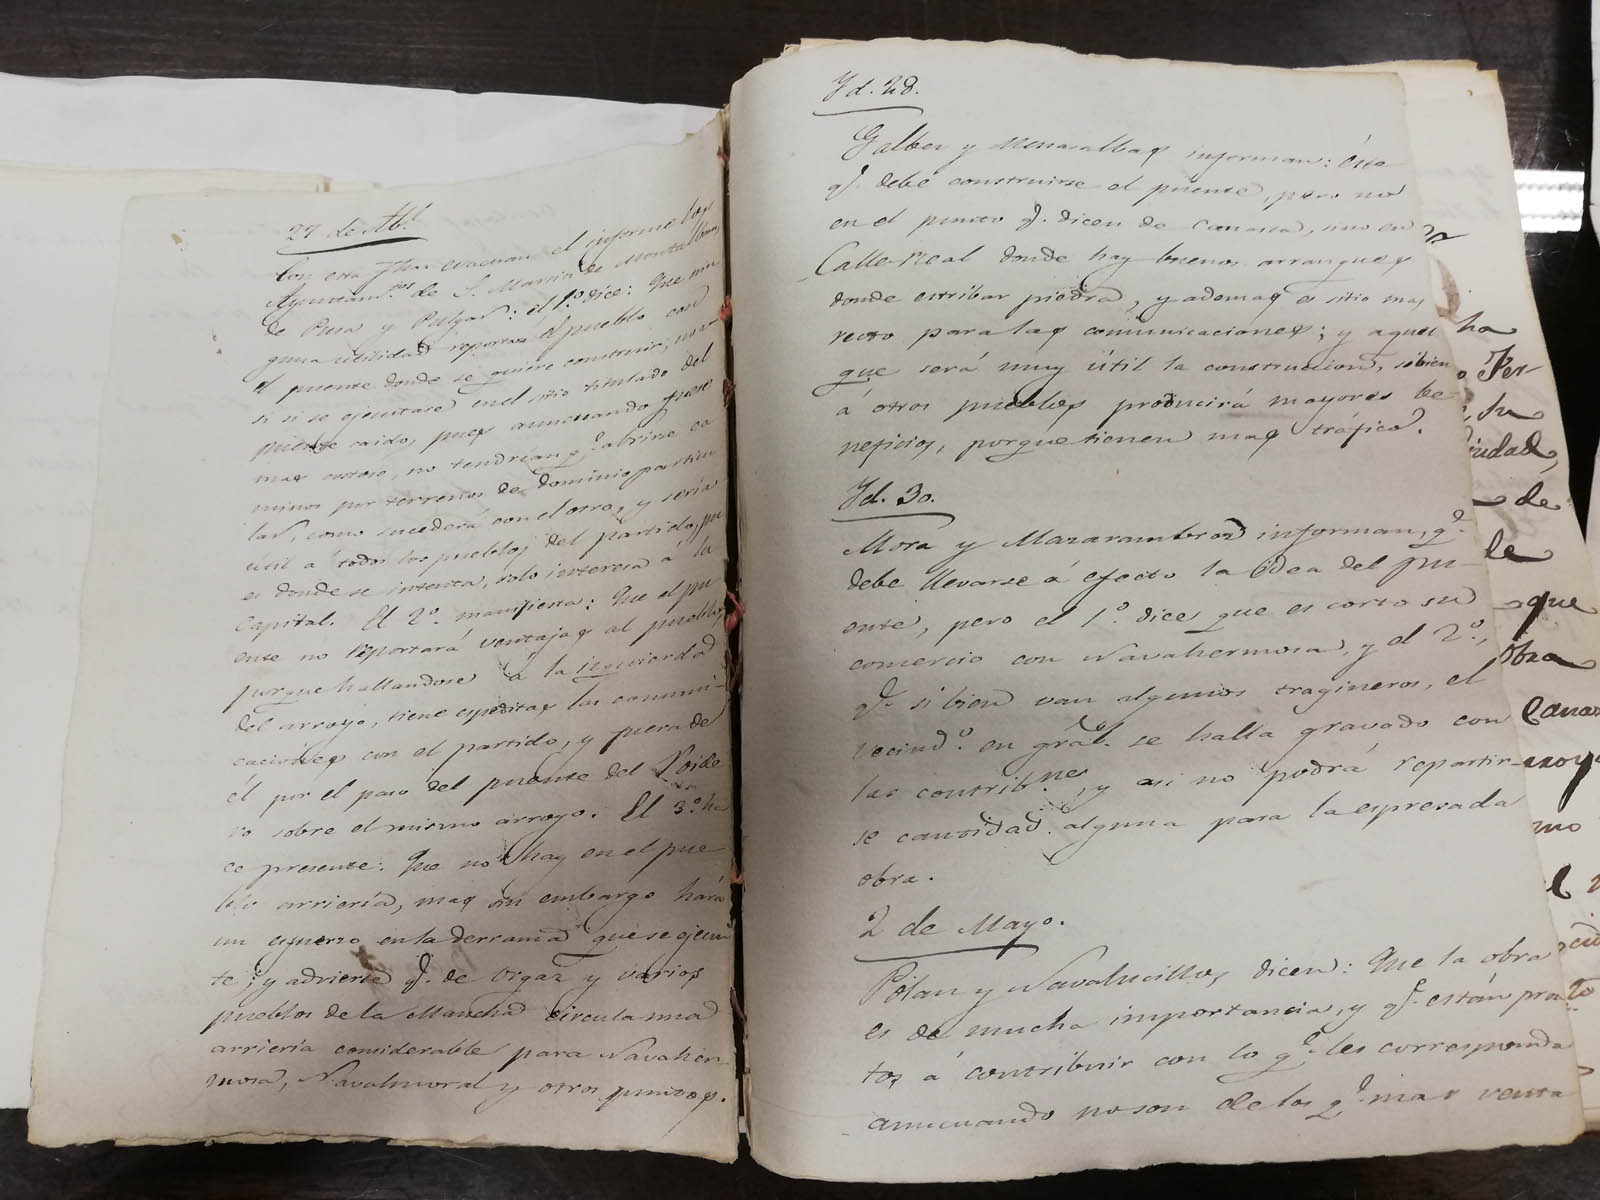 27 de Ab.l
Con esta fha evacuan el informe los
Ayuntam.tos de S. Martin de Montalban,
de Pusa y Pulgar: el 1.º dice: Que nin
guna utilidad reportará al pueblo con
el puente donde se quiere construir, no a
si si se ejecutare en el sitio titulado del
puente caido, pues aun cuando fuese
mas costoso, no tendrian q.e abrirse ca
minos por terrenos de dominio particu
lar, como sucederá con el otro, y sería
útil á todos los pueblos del partido, pu
es donde se intenta, solo interesa á la
Capital. El 2.º manifiesta: Que el pu
ente no reportará ventajas al pueblo,
porque hallandose á la izquierda
del arroyo, tiene espeditas las comuni-
caciones con el partido, y fuera de
él por el paso del puente del
ro sobre el mismo arroyo. El 3.º ha
ce presente: Que no hay en el pue-
blo arriería, mas sin embargo hará
un esfuerzo en la derrama que se ejecu
te; y advierte q.e de Orgaz y varios
pueblos de la Mancha circula una
arriería considerable para Navaher-
mosa, Navalmoral y otros puntos.
Yd. 28.
Galbez y Menasalbas informan: éste
q.e debe construirse el puente, pero no
en el punto q.e dicen de Canasta, sino en
Calle-Real donde hay buenos arranques
donde estribar piedra, y ademas es sitio mas
recto para las comunicaciones; y aquel
que será muy útil la construccion, si bien
á otros pueblos producirá mayores be
neficios, porque tienen mas tráfico.
Yd. 30.
Mora y Mazarambroz informan, q.e
debe llevarse á efecto la idea del pu-
ente, pero el 1.º dice que es corto su
comercio con Navahermosa, y el 2.º,
q.e si bien van algunos tragineros, el
vecind.º en gral. se halla gravado con
las contrib.nes, y asi no podrá repartir-
se cantidad alguna para la espresada
obra.
2 de Mayo.
Polan y Navalucillos, dicen: Que la obra
es de mucha importancia, y q.e están pron
tos á contribuir con lo q.e les corresponda
aun cuando no son de los q.e mas venta
ha
Per-
su
ciudad,
de
le
que
obra
Canas